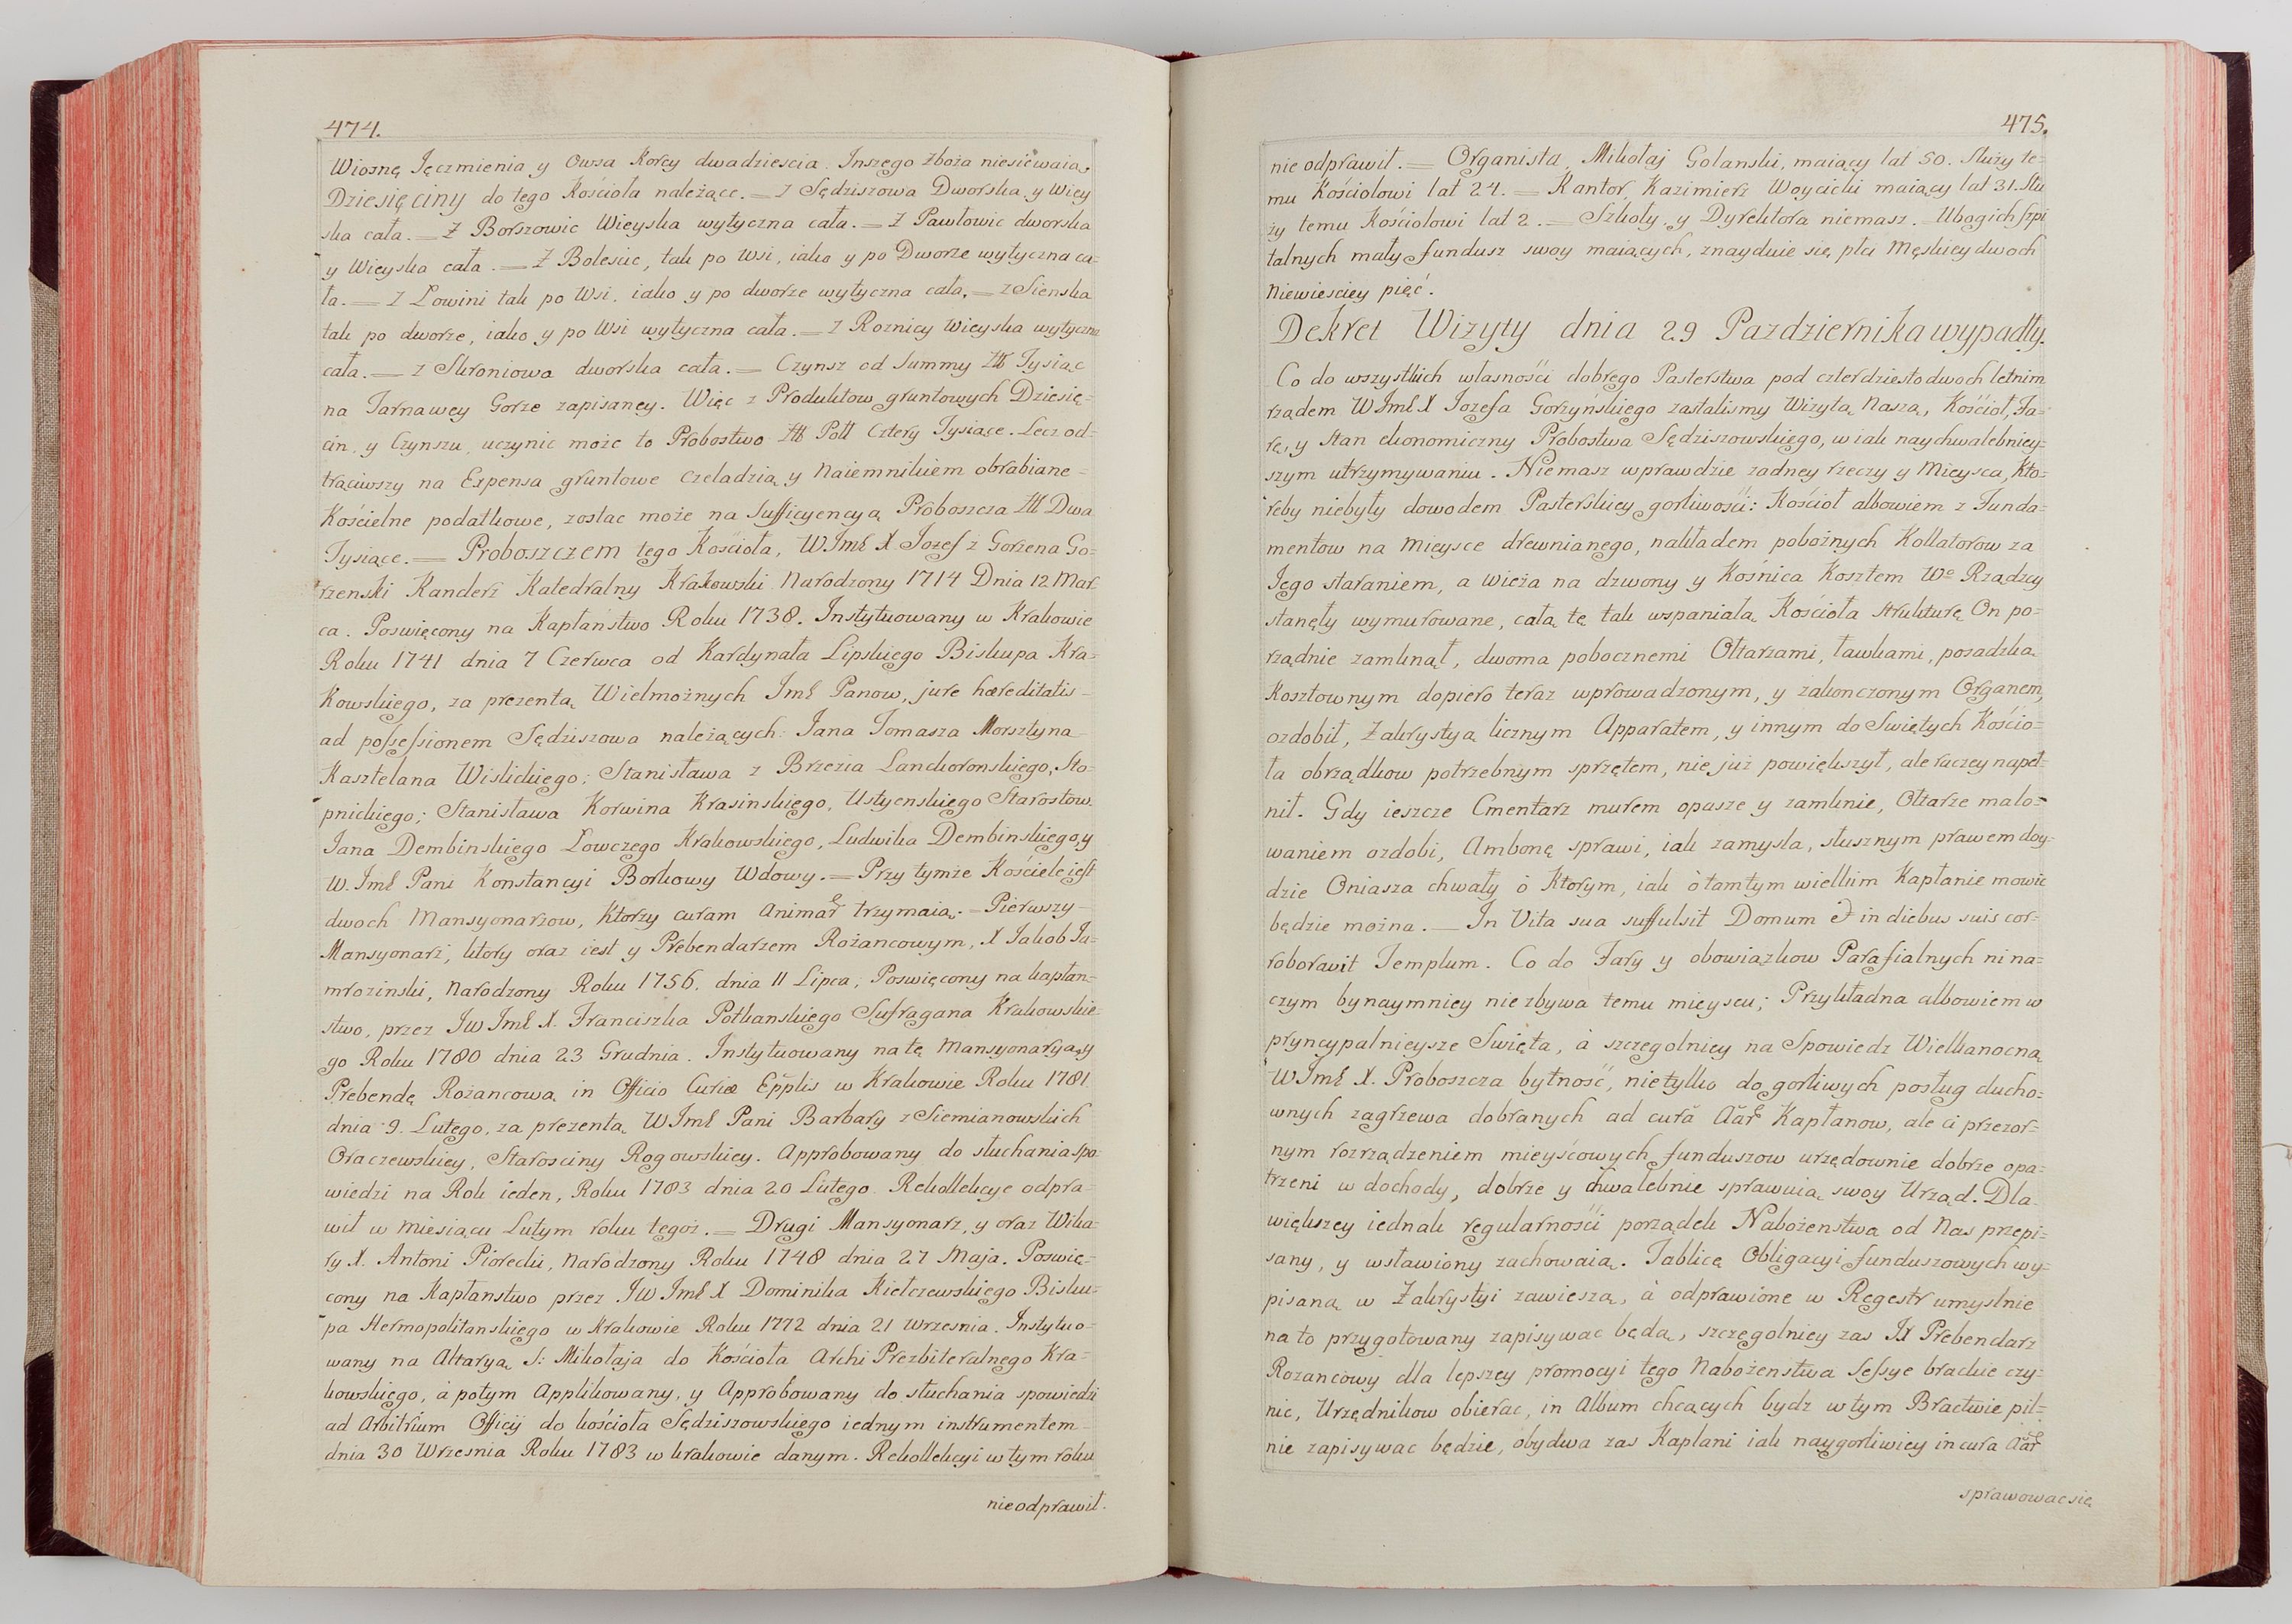 474.
Wiosnę Jęczmienia y Owsa Korcy dwadziescia. Inszego Zboża niesiewaią.
Dziesięciny do tego Kościoła należące. = Z Sędziszowa Dworska, y Wiey
ska cała. = Z Borszowic Wieyska wytyczna cała. = Z Pawłowic dworska
y Wieyska cała. = Z Bolesiic, tak po Wsi, iako y po Dworze wytyczna ca=
ła. = Z Łowini tak po Wsi, iako y po dworze wytyczna cała, = z Sienska
tak po dworze, iako y po Wsi wytyczna cała. = Z Roznicy Wieyska wytyczna
cała. = Z Skroniowa dworska cała. = Czynsz od Summy Tysiąc
na Tarnawey Gorze zapisaney. Więc z Produktow gruntowych Dziesię=
cin, y Czynszu, uczynic może to Probostwo Pol Cztery Tysiące. Lecz od=
trąciwszy na Expensa gruntowe czeladzią y Naiemnikiem obrabiane =
Kościelne podatkowe, zostac może na Sufficyencyą Proboszcza Dwa
Tysiące. = Proboszczem tego Kościoła, WImć X Jozef z Gorzena Go=
rzenski Kanderz Katedralny Krakowski. Narodzony 1714 Dnia 12 Mar=
ca. Poswięcony na Kapłaństwo Roku 1738. Instytuowany w Krakowie
Roku 1741 dnia 7 Czerwca od Kardynała Lipskiego Biskupa Kra=
Kowskiego, za prezentą Wielmożnych Imć Panow, jure hæreditatis =
ad possessionem Sędziszowa należących: Jana Tomasza Morsztyna
Kasztelana Wislickiego; Stanisława z Brzezia Lanckoronskiego, Sto=
pnickiego; Stanisława Korwina Krasinskiego, Ustyenskiego Starostow.
Jana Dembinskiego Łowczego Krakowskiego, Ludwika Dembinskiego, y
W. Imć Pani Konstancyi Borkowy Wdowy. = Przy tymże Kościele iest
dwoch Mansyonarzow, Ktorzy curam Animar trzymaią. = Pierwszy =
Mansyonarz, ktory oraz iest y Prebendarzem Rożancowym, X Jakob Ja=
mrozinski, Narodzony Roku 1756. dnia 11 Lipca, Poswięcony na kapłan=
stwo, przez JW Imć X. Franciszka Potkanskiego Sufragana Krakowskie=
go Roku 1780 dnia 23 Grudnia. Instytuowany na tę Mansyonaryą, y
Prebendę Rożancową in Officio Curiæ Epplis w Krakowie Roku 1781
dnia 9. Lutego, za prezentą WImć Pani Barbary z Siemianowskich
Oraczewskiey, Starosciny Rogowskiey. Approbowany do słuchania spo=
wiedzi na Rok ieden, Roku 1783 dnia 20 Lutego. Rekollekcye odpra=
wił w miesiącu Lutym roku tegoż. = Drugi Mansyonarz, y oraz Wika=
ry X. Antoni Piorecki, Narodzony Roku 1748 dnia 27 Maja. Poswię=
cony na Kapłanstwo przez JW Imć X Dominika Kiełczewskiego Bisku=
pa Hermopolitanskiego w Krakowie Roku 1772 dnia 21 Wrzesnia. Instytuo=
wany na Altaryą S: Mikołaja do Kościoła Archi Prezbiteralnego Kra=
kowskiego, à potym Applikowany, y Approbowany do słuchania spowiedzi
ad Arbitrium Officij do kościoła Sędziszowskiego iednym instrumentem =
dnia 30 Wrzesnia Roku 1783 w krakowie danym. Rekollekcyi w tym roku
nieodprawił.
475.
nie odprawił. = Organista, Mikołaj Golanski, maiący lat 50. Służy te=
mu Kościołowi lat 24. = Kantor, Kazimierz Woycicki maiący lat 31. Słu
ży temu Kościołowi lat 2. = Szkoły, y Dyrektora niemasz. = Ubogich Szpi
talnych mały fundusz swoy maiących, znayduie się płci Męskiey dwoch
Niewiesciey pięć.
Dekret Wizyty dnia 29 Pazdziernika wypadły.
Co do wszystkich własnośći dobrego Pasterstwa pod czterdziesto dwoch letnim
rządem WImć X Jozefa Gorzyńskiego zastalismy Wizytą Naszą, Kościoł, Fa=
rę, y Stan ekonomiczny Probostwa Sędziszowskiego, w iak naychwalebniey=
szym utrzymywaniu. Niemasz wprawdzie zadney rzeczy y Mieysca, Kto=
reby niebyły dowodem Pasterskiey gorliwośći: Kościoł albowiem z Funda=
mentow na Mieysce drewnianego, nakładem pobożnych Kollatorow za
Jego staraniem, a Wieża na dzwony y Kośnica Kosztem We Rządzcy
stanęły wymurowane, całą tę tak wspaniałą Kościoła strukturę On po=
rządnie zamknął, dwoma pobocznemi Ołtarzami, ławkami, posadzką
Kosztownym dopiero teraz wprowadzonym, y zakonczonym Organem,
ozdobił, Zakrystyą licznym Apparatem, y innym do Swiętych Kościo=
ła obrządkow potrzebnym sprzętem, nie już powiększył, ale raczey napeł=
nił. Gdy ieszcze Cmentarz murem opasze y zamknie, Ołtarze malo=
waniem ozdobi, Ambonę sprawi, iak zamysla, słusznym prawem doy=
dzie Oniasza chwały ò Ktorym, iak ò tamtym wielkim Kapłanie mowic
będzie można. — In Vita sua suffulsit Domum et in diebus suis cor=
roboravit Templum. Co do Fary y obowiązkow Parafialnych ni na=
czym bynaymniey nie zbywa temu mieyscu; Przykładna albowiem w
pryncypalnieysze Swięta, à szczegolniey na Spowiedz Wielkanocną
WImć X. Proboszcza bytność, nietylko do gorliwych posług ducho=
wnych zagrzewa dobranych ad cură Aăr Kapłanow, ale ci przezor=
nym rozrządzeniem mieyścowych funduszow urzędownie dobrze opa=
trzeni w dochody, dobrze y chwalebnie sprawuią swoy Urząd. Dla
większey iednak regularnośći porządek Nabożenstwa od Nas przepi=
sany, y wstawiony zachowaią. Tablicę Obligacyi funduszowych wy=
pisaną w Zakrystyi zawieszą, à odprawione w Regestr umyslnie
na to przygotowany zapisywac będą, szczegolniey zas JX Prebendarz
Rozancowy dla lepszey promocyi tego Nabożenstwa Sessye brackie czy=
nic, Urzędnikow obierac, in Album chcących bydz w tym Bractwie pil=
nie zapisywac będzie, obydwa zas Kapłani iak naygorliwiey in cura Aăr
sprawowac się